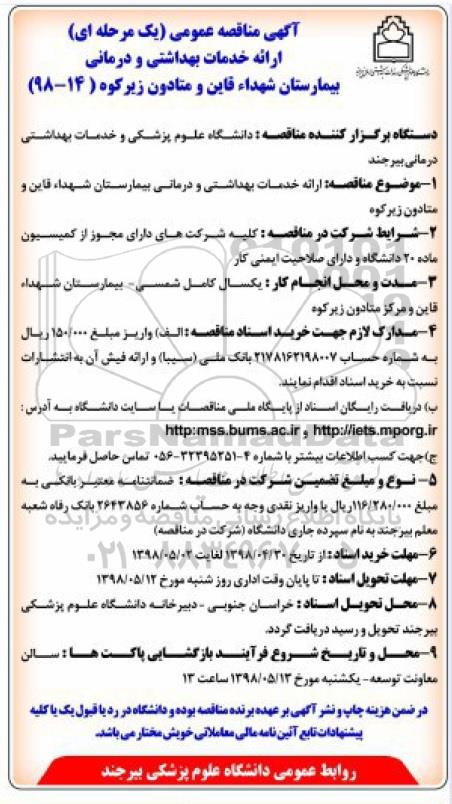 آگهی مناقصه عمومی (یک مرحله ای)
ارائه خدمات بهداشتی و درمانی
بیمارستان شهداء قاین و متادون زیرکوه ( ۱۴-۹۸)
دستگاه برگزار کننده مناقصه : دانشگاه علوم پزشکی و خدمات بهداشتی
درمانی بیرجند
۱-موضوع مناقصه: ارائه خدمات بهداشتی و درمانی بیمارستان شهداء قاین و
متادون زیرکوه
۲-شرایط شرکت در مناقصه : کلیه شرکت های دارای مجوز از کمیسیون
ماده ۲۰ دانشگاه و دارای صلاحیت ایمنی کار
۳-مدت و محل انجام کار : یکسال کامل شمسی- بیمارستان شهداء
قاین و مرکز متادون زیرکوه
۴-مدارک لازم جهت خرید اسناد مناقصه : الف) واریز مبلغ ۱۵۰/۰۰۰ ریال
به شماره حساب ۲۱۷۸۱۶۲۱۹۸۰۰۷ بانک ملی (سیبا) و ارائه فیش آن به انتشارات
نسبت به خرید اسناد اقدام نمایند.
ب) دریافت رایگان اسناد از پایگاه ملی مناقصات یا سایت دانشگاه به آدرس :
http://iets.mporg.ir و http:mss.bums.ac.ir
ج)جهت کسب اطلاعات بیشتر با شماره ۴-۳۲۳۹۵۲۵۱-۰۵۶ تماس حاصل فرمایید.
۵- نوع و مبلغ تضمین شرکت در مناقصه : ضمانتنامه معتبر بانکی به
مبلغ ۱۱۶/۲۸۰/۰۰۰ریال یا واریز نقدی وجه به حساب شماره ۲۶۴۳۸۵۶ بانک رفاه شعبه
معلم بیرجند به نام سپرده جاری دانشگاه (شرکت در مناقصه)
۶-مهلت خرید اسناد : از تاریخ ۱۳۹۸/۰۴/۳۰ لغایت ۱۳۹۸/۰۵/۰۲
۷-مهلت تحویل اسناد : تا پایان وقت اداری روز شنبه مورخ ۱۳۹۸/۰۵/۱۲
۸-محل تحویل اسناد : خراسان جنوبی -دبیرخانه دانشگاه علوم پزشکی
بیرجند تحویل و رسید دریافت گردد.
۹-محل و تاریخ شروع فرآیند بازگشایی پاکت ها : سالن
معاونت توسعه- یکشنبه مورخ ۱۳۹۸/۰۵/۱۳ ساعت ۱۳
در ضمن هزینه چاپ و نشر آگهی بر عهده برنده مناقصه بوده و دانشگاه در رد یا قبول یک یا کلیه
پیشنهادات تابع آئین نامه مالی معاملاتی خویش مختار می باشد.
روابط عمومی دانشگاه علوم پزشکی بیرجند
ParsNamadData
پایگاه اطلاع رسانی مناقصه و مزایده
۰۲۱-۸۸۳۴۹۶۷۰-۵